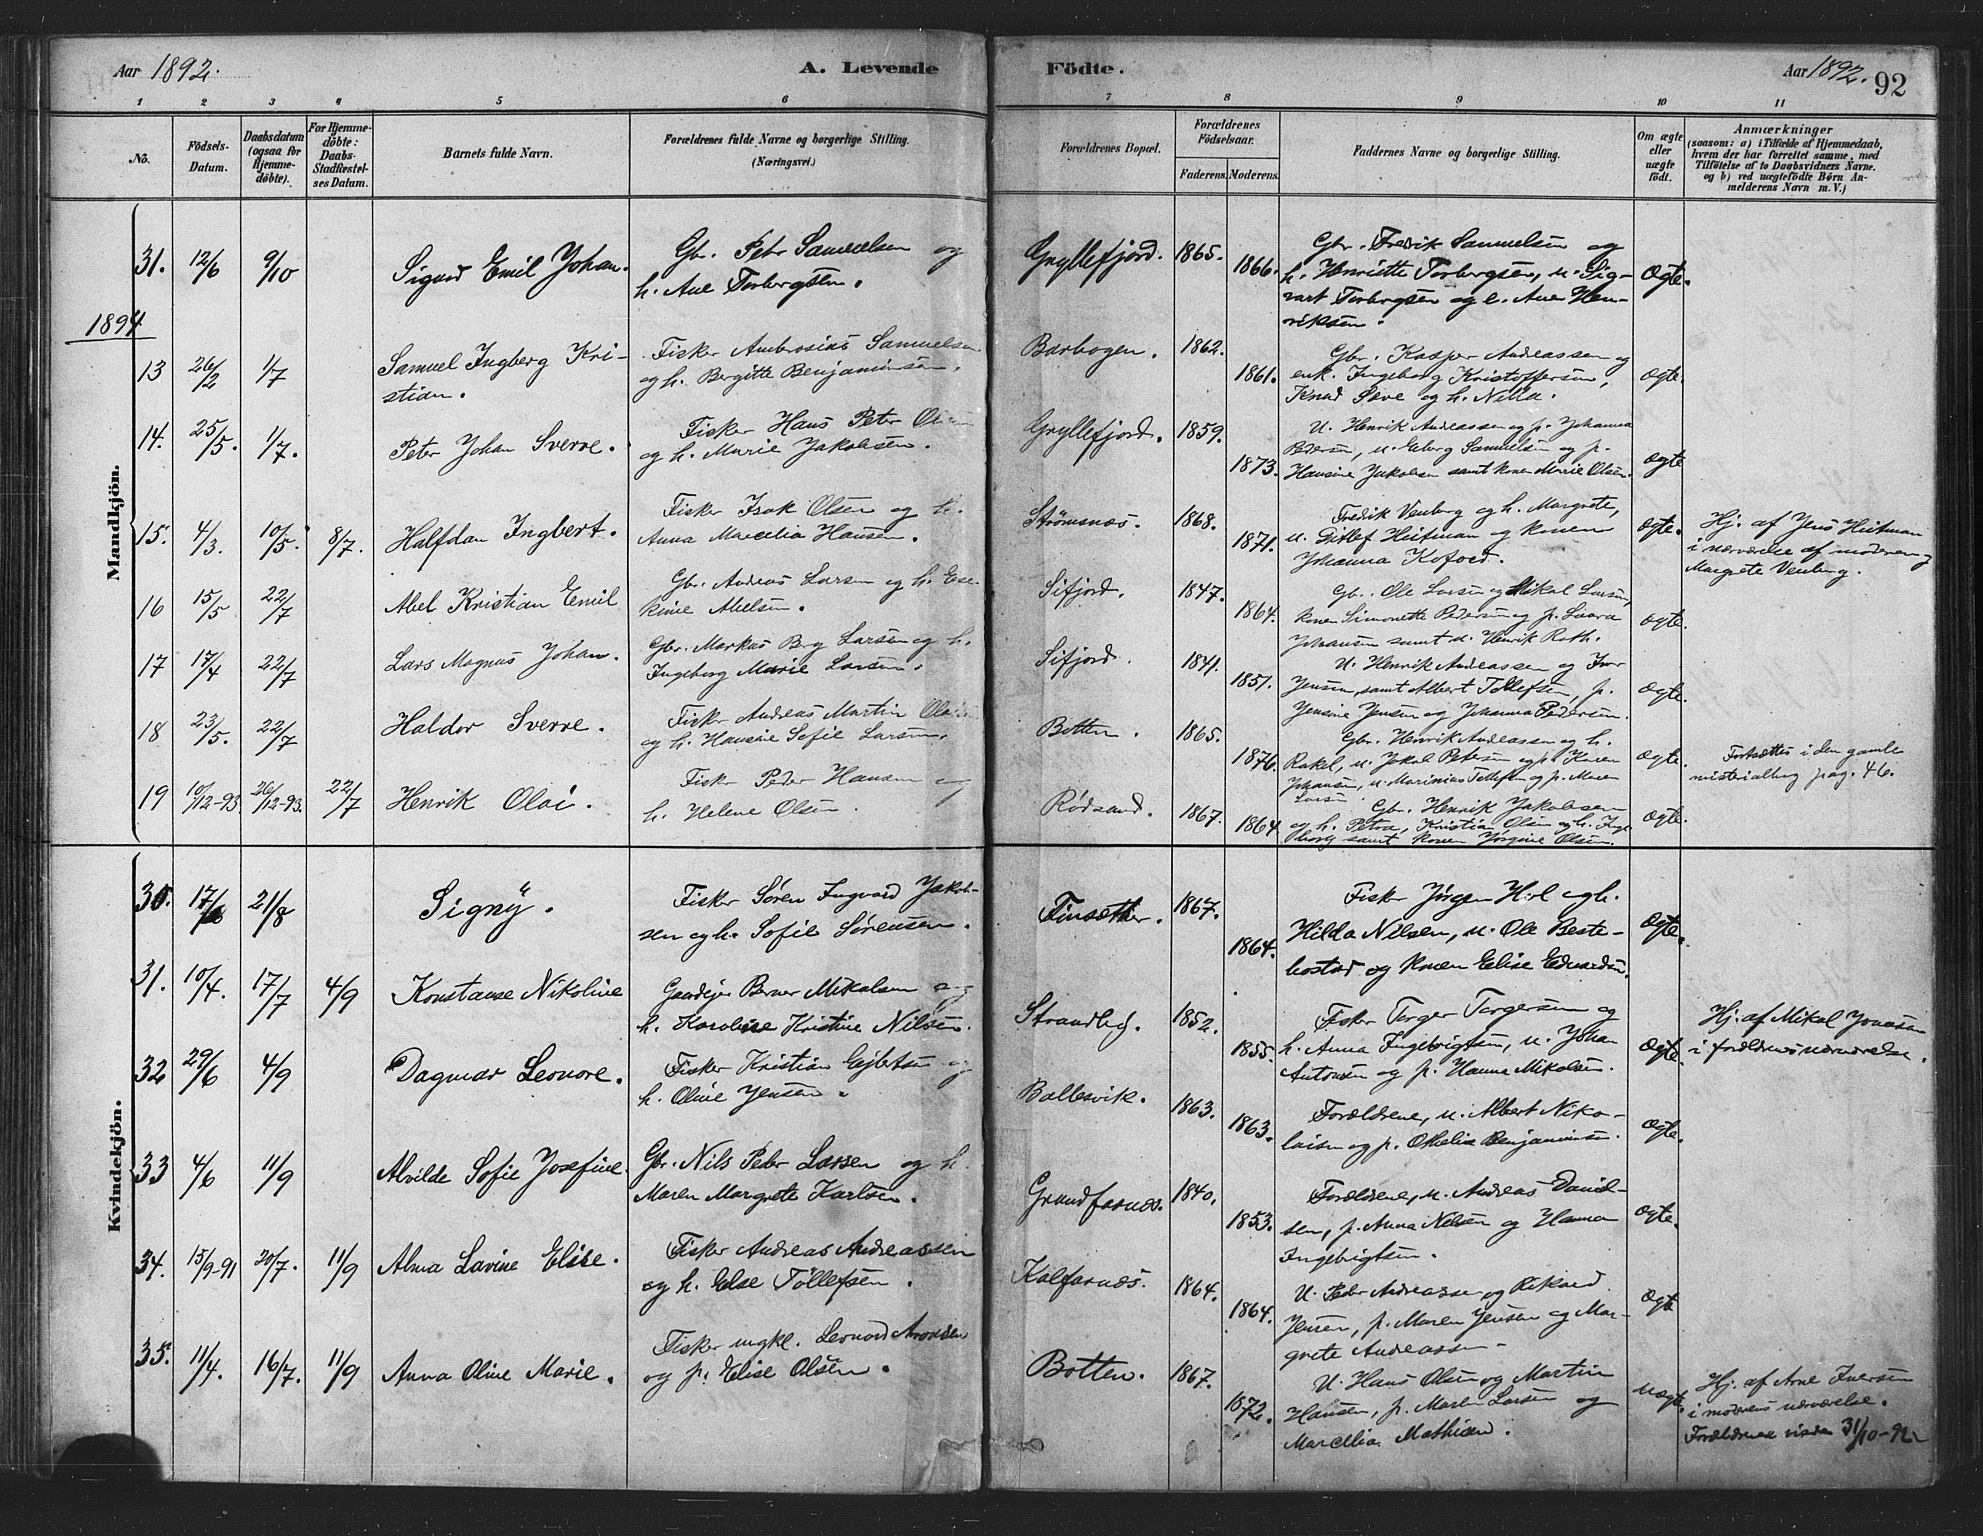 Aar 1892. A. Levende Födte. Aar 1892. 92
1 2 3 4 5 6 7 8 9 10 11
No. Födsels-Datum. Daabsdatum (ogsaa for Hjemmedöbte). For Hjemmedöbte: Daabs-Stadfæstelses Datum. Barnets fulde Navn. Forældrenes fulde Navne og borgerlige Stilling. (Næringsvei.) Forældrenes Bopæl. Forældrenes Födselsaar. Faderens. Moderens. Faddernes Navne og borgerlige Stilling. Om ægte eller uægte födt. Anmærkninger (saasom: a) i Tilfælde af Hjemmedaab, hvem der har forrettet samme, med Tilföielse af to Daabsvidners Navne, og b) ved uægtefödte Börn Anmelderens Navn m. V.)
Mandkjön.
31. 12/6 9/10 Sigurd Emil Johan. Gbr. Peter Samuelsen og
h. Ane Torbergsen.
Gryllefjord. 1865. 1866. Gbr. Fredrik Samuelsen og
h. Henriette Torbergsen, u. Sig-
vart Torbergsen og e. Ane Hen-
riksen. Ægte.
1894
13 26/2 1/7 Samuel Ingberg Kri-
stian. Fisker Ambrosius Samuelsen
og h. Bergitte Benjaminsen.
Barbogen. 1862. 1861. Gbr. Kasper Andreassen og
enk. Ingeborg Kristoffersen,
Knud og h. Ægte.
14. 25/5. 1/7. Peter Johan Sverre. Fisker Hans Peter Olsen
og h. Marie Jakobsen.
Gryllefjord. 1859. 1873. U. Henrik Andreassen og p. Johanna
Pedersen, u. Samuelsen og p.
Hansine Jakobsen samt konen Marie Olsen. Ægte
15. 4/3. 10/5. 8/7. Halfdan Ingbert. Fisker Isak Olsen og h.
Anna Marcelia Hansen.
Strømsnæs. 1868. 1871. Fredrik Venberg og h. Margrete,
u. Ditlef Heitman og konen
Johanna Kofoed. Ægte. Hj. af Jens Heitman
i nærværelse af moderen og
Margrete Venberg.
16 15/5 22/7 Abel Kristian Emil Gbr. Andreas Larsen og h. Ese-
kine Abelsen.
Sifjord. 1847. 1864. Gbr. Ole Larsen og Mikal Larsen,
konen Simonette Pedersen og p.
Johansen samt u. Henrik Roth. Ægte.
17 17/4 22/7 Lars Magnus Johan. Gbr. Markus Larsen og h.
Ingeborg Marie Larsen.
Sifjord. 1841. 1851. U. Henrik Andreassen og
Jensen, samt Albert Tollefsen, p.
Jensine Jensen og Johanna Pedersen. Ægte.
18 23/5. 22/7 Haldor Sverre. Fisker Andreas Martin
og h. Hansine Sofie Larsen.
Botten. 1865. 1876. Gbr. Henrik Andreassen og h.
Rakel, u. Jakob Petersen og p. Karen
Johansen, u. Marinius Tollefsen og p. Maren
Larsen Ægte. Fortsættes i den gamle
ministerialbog pag. 46.
19 10/12-93. 26/12-93. 22/7 Henrik Olai. Fisker Peder Hansen og
h. Helene Olsen.
Rödsand. 1867. 1864 Gbr. Henrik Jakobsen
og h. Petra, Kristian Olsen og h. Inge-
borg samt konen Jørgine Olsen. Ægte.
Kvindekjön.
30. 17/6 21/8 Signy. Fisker Sören Ingvard Jakob-
sen og h. Sofie Sörensen.
Finsæther. 1867. 1864. Fisker Jörgen og h.
Hilda Nilsen, u. Ole Beste-
bostad og konen Elise Edvardsen. Ægte.
31. 10/4. 17/7 4/9 Konstanse Nikoline Gaardejer Berner Mikalsen og
h. Karoline Kristine Nilsen.
Strandleg. 1852. 1855. Fisker Torger Torgersen og
h. Anna Ingebrigtsen, u. Johan
Antonsen og p. Hanna Mikalsen. Ægte. Hj. af Mikal Jonassen
i forældrenes nærværelse.
32 29/6 4/9 Dagmar Leonore. Fisker Kristian Ejbertsen og
h. Oline Jensen.
Ballesvik. 1863. 1863. Forældrene, u. Albert Niko-
laisen og p. Othelie Benjaminsen. Ægte.
33 4/6 11/9 Alvilde Sofie Josefine. Gbr. Nils Peter Larsen og h.
Maren Margrete Karlsen.
Grundfarnæs. 1840. 1853. Forældrene, u. Andreas Daniel-
sen, p. Anna Nilsen og Hanna
Ingebrigtsen. Ægte.
34. 15/9-91 20/7. 11/9 Alma Lavine Elise. Fisker Andreas Andreassen
og h. Else Töllefsen.
Kalfarnæs. 1864. 1864. U. Peder Andreassen og Rikard
Jensen, p. Maren Jensen og Mar-
grete Andreassen. Ægte
35. 11/4. 16/7. 11/9 Anna Oline Marie. Fisker ungkl. Leonard Aronsen
og p. Elise Olsen.
Botten. 1867. 1872. U. Hans Olsen og Martin
Hansen, p. Maren Larsen og
Marcelia Mathisen. Uægte. Hj. af Arne Iversen
i moderens nærværelse.
Forældrene viede 31/10-92.